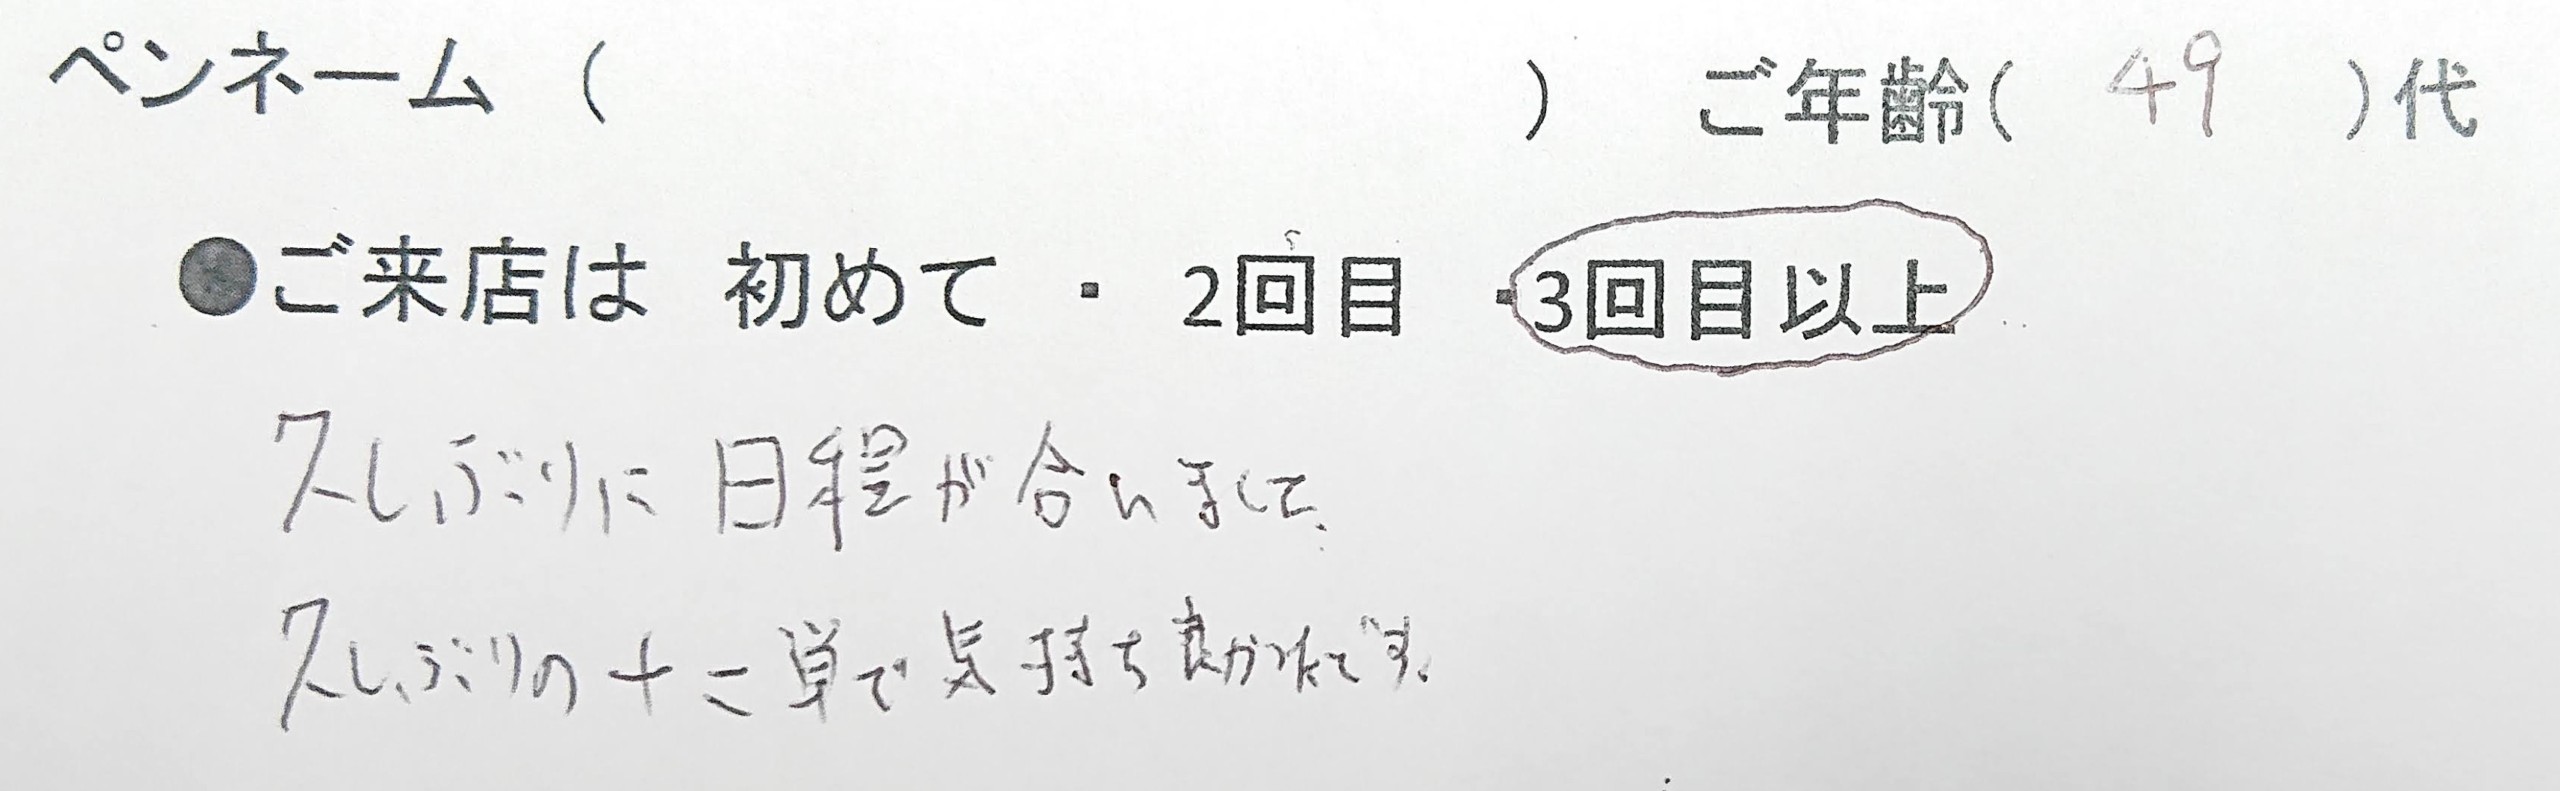 ペンネーム ( ) ご年齢( 49 )代
●ご来店は 初めて ・ 2回目 ・3回目以上
久しぶりに日程が合いまして、
久しぶりの十二単で気持ち良かったです。